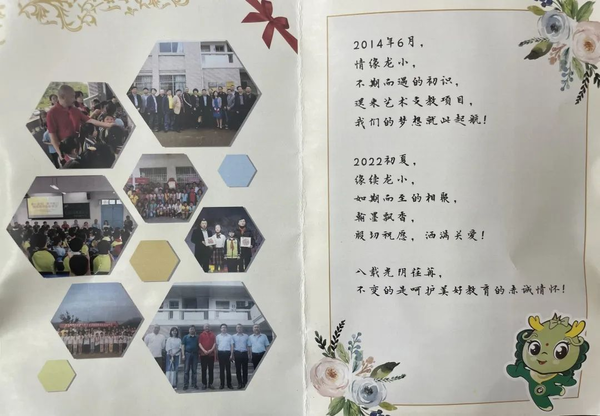 2014年6月，
情缘龙小，
不期而遇的初识，
送来艺术支教项目，
我们的梦想就此起航！
2022初夏，
缘续龙小，
如期而至的相聚，
翰墨飘香，
殷切祝愿，洒满关爱！
八载光阴荏苒，
不变的是呵护美好教育的赤诚情怀！